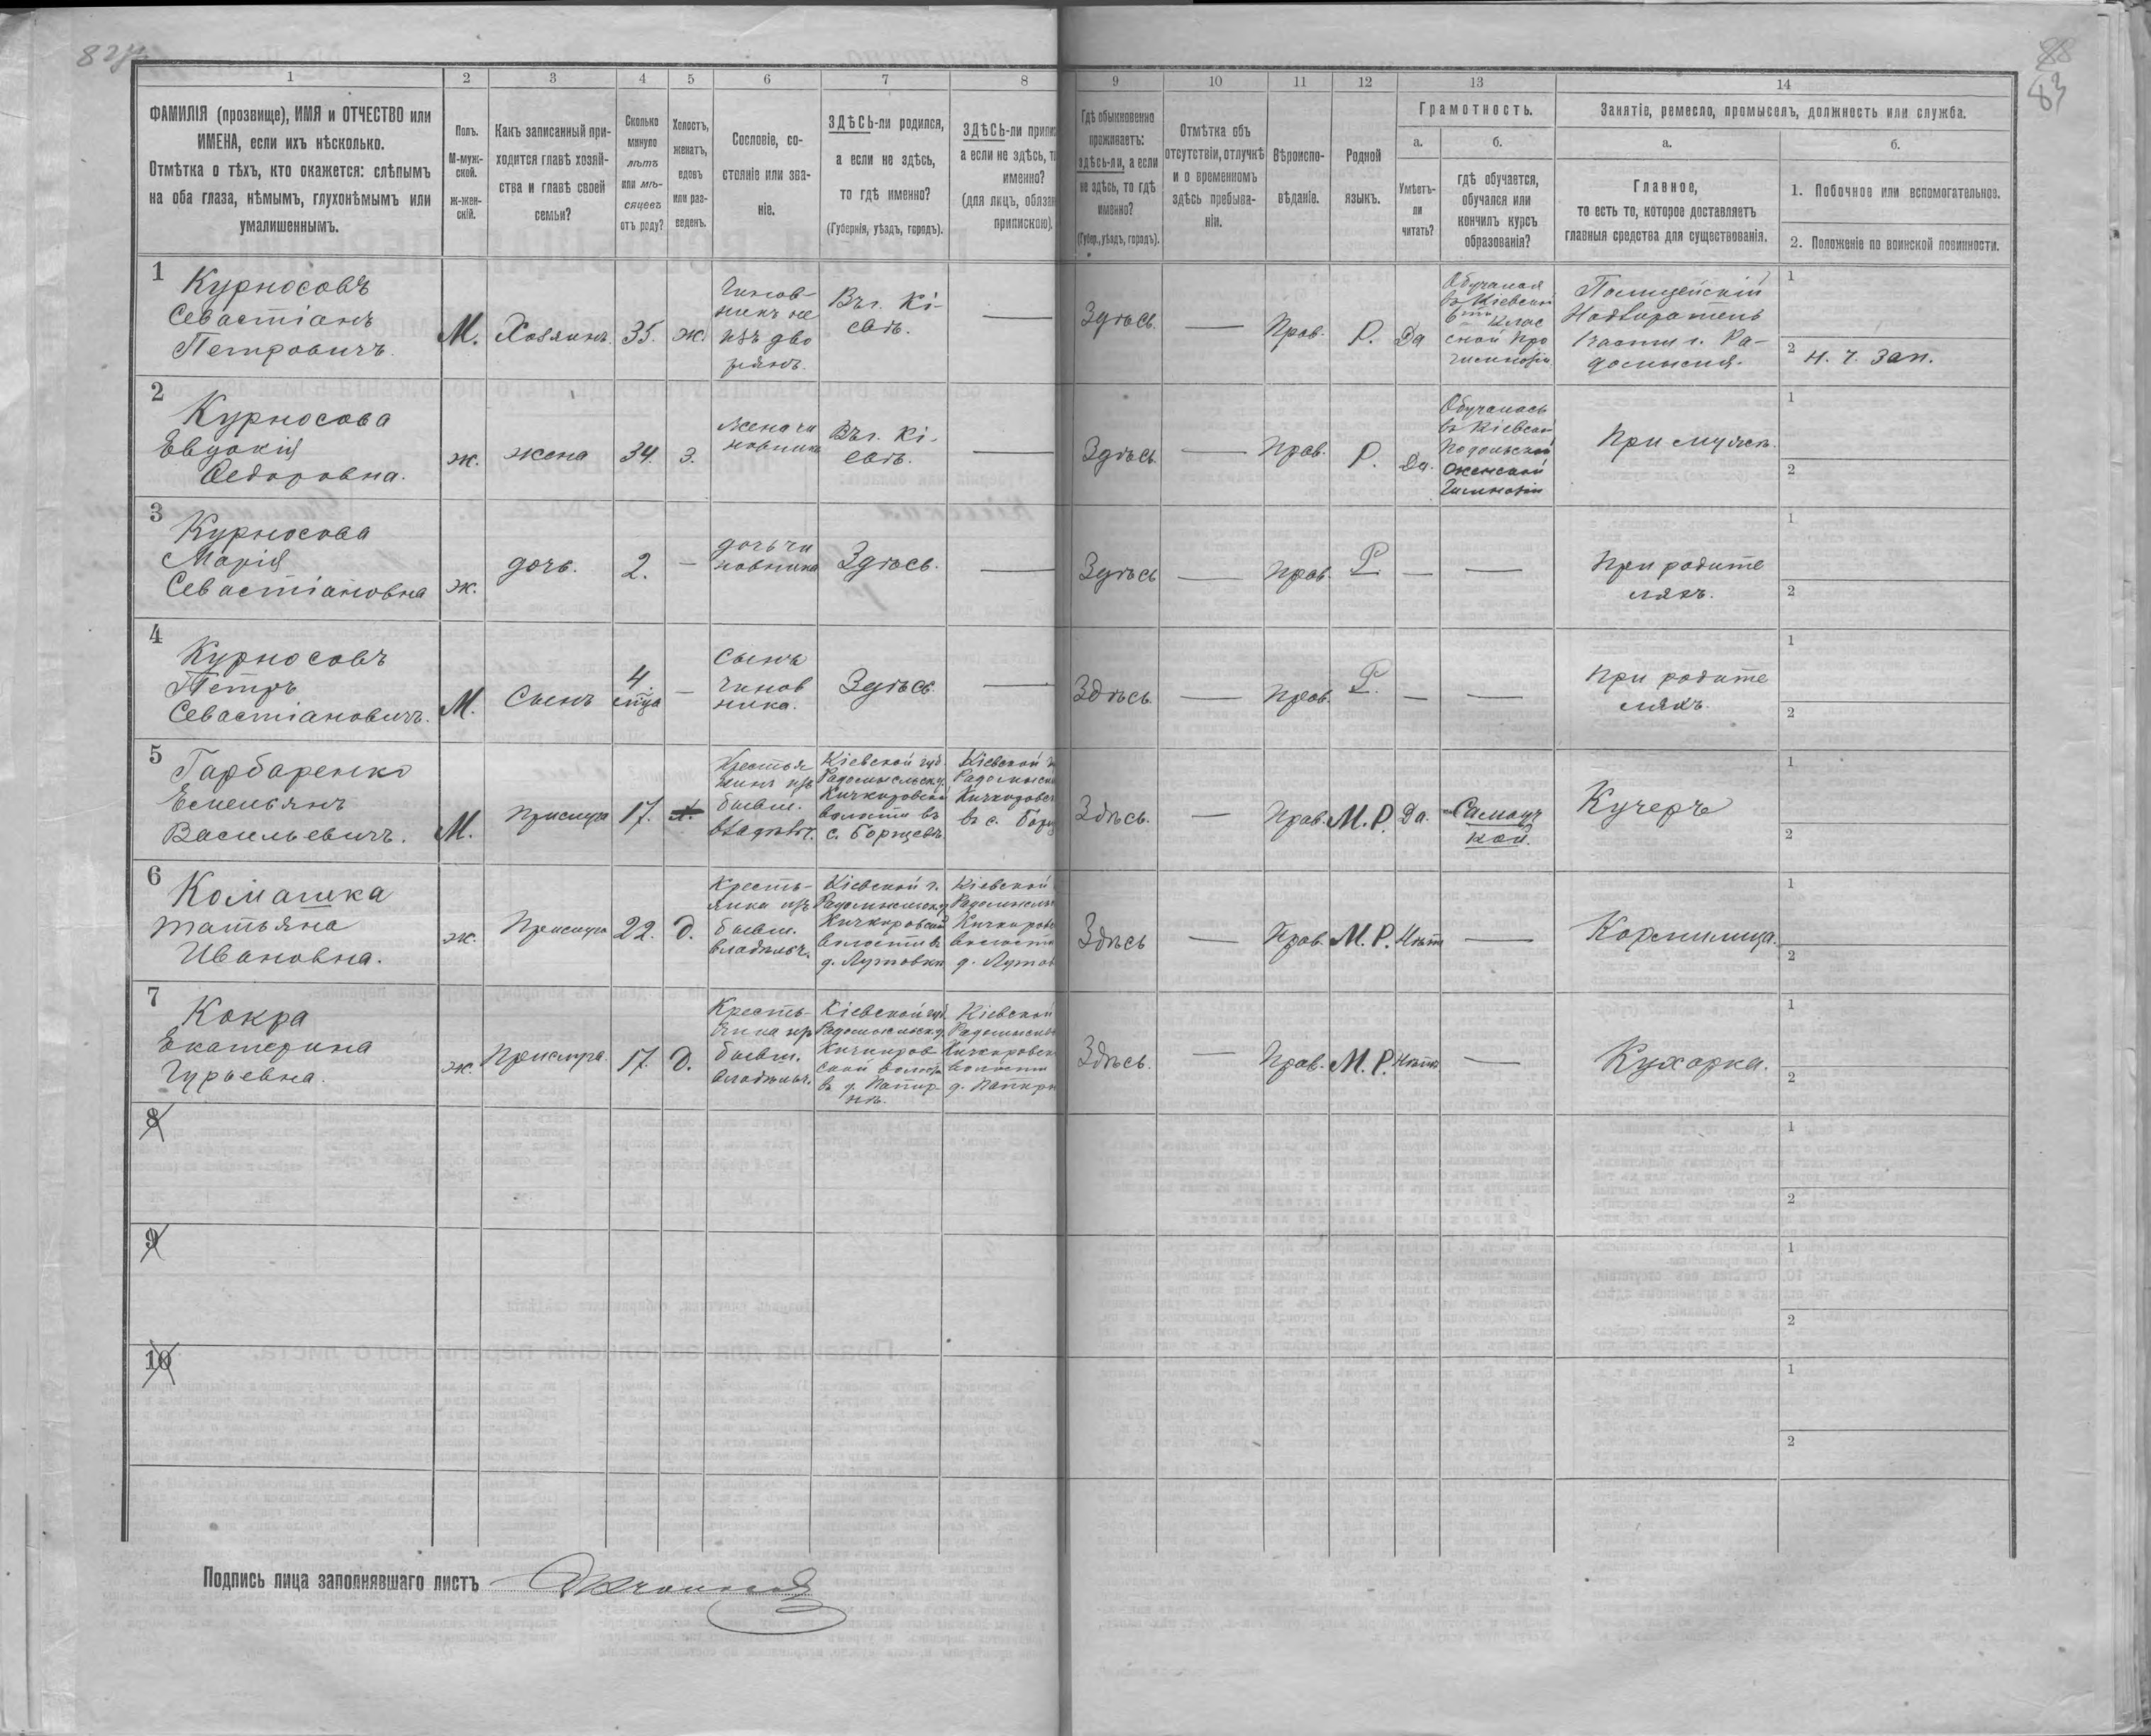 82
88
83
1
2
3
4
5
6
7
8
9
10
11
12
13
14
ФАМИЛІЯ (прозвище), ИМЯ и ОТЧЕСТВО или
ИМЕНА, если ихъ нѣсколько.
Отмѣтка о тѣхъ, кто окажется: слѣпымъ
на оба глаза, нѣмымъ, глухонѣмымъ или
умалишеннымъ.
Полъ.
М-муж-
ской.
ж-жен-
скій.
Какъ записанный при-
ходится главѣ хозяй-
ства и главѣ своей
семьи?
Сколько
минуло
лѣтъ
или мѣ-
сяцевъ
отъ роду?
Холостъ,
женатъ,
вдовъ
или раз-
веденъ.
Сословіе, со-
стояніе или зва-
ніе.
ЗДѢСЬ-ли родился,
а если не здѣсь,
то гдѣ именно?
(Губернія, уѣздъ, городъ).
ЗДѢСЬ-ли
а если не здѣсь,
именно?
(для лицъ,
припискою).
Гдѣ обыкновенно
проживаетъ:
здѣсь-ли, а если
не здѣсь, то гдѣ
именно?
(Губер., уѣздъ, городъ).
Отмѣтка объ
отсутствіи, отлучкѣ
и о временномъ
здѣсь пребыва-
ніи.
Вѣроиспо-
вѣданіе.
Родной
языкъ.
Грамотность.
а.
Умѣетъ-
ли
читать?
б.
гдѣ обучается,
обучался или
кончилъ курсъ
образованія?
Занятіе, ремесло, промыселъ, должность или служба.
а.
Главное,
то есть то, которое доставляетъ
главныя средства для существованія.
б.
1. Побочное или вспомогательное.
2. Положеніе по воинской повинности.
1
Курносовъ
Севастіанъ
Петровичъ.
М.
Хозяинъ.
35.
ж.
Чинов-
никъ не
изъ дво
рянъ.
Въ г. Кі-
евѣ.
—
Здѣсь
—
Прав.
Р.
Да
Обучался
въ Кіевской
6ти Клас
сной Про
гимназіи
Полицейскій
Надзиратель
1 части г. Ра-
домысля.
1
2 н. ч. зап.
2
Курносова
Евдокія
Ѳедоровна.
ж.
жена
34.
З.
Жена чи
новника
Въ г. Кі-
евѣ.
—
Здѣсь
—
Прав.
Р.
Да.
Обучалась
въ Кіевской
Подольской
женской
Гимназіи
При мужѣ.
1
2
3
Курносова
Марія
Севастіановна
ж.
дочь.
2.
—
дочь чи
новника
Здѣсь.
—
Здѣсь
—
Прав.
Р.
—
—
При родите
ляхъ.
1
2
4
Курносовъ
Петръ
Севастіановичъ.
М.
Сынъ
4.
мѣца
—
Сынъ
чинов
ника.
Здѣсь.
—
Здѣсь
—
Прав.
Р.
—
—
При родите
ляхъ.
1
2
5
Гарбаренко
Емельянъ
Васильевичъ.
М.
Прислуга
17.
Х.
Крестья
нинъ изъ
бывш.
владѣльч.
Кіевской губ.
Радомысльск. у.
Кичкировской
волости въ
с. Борщевѣ
Кіевской
Кичкировс
въ с. Борщ
Здѣсь.
—
Прав.
М.Р.
Да.
Самоуч
кой.
Кучеръ
1
2
6
Комашка
Татьяна
Ивановна.
ж.
Прислуга
22.
Д.
Кресть-
янка изъ
бывш.
владѣльч.
Кіевской г.
Радомысльск. у.
Кичкировской
волости въ
д. Лутовкѣ
Кіевской
Кичкиров
волости
д. Лутов
Здѣсь
—
Прав.
М.Р.
Нѣтъ
—
Кормилица.
1
2
7
Кокра
Екатерина
Гурьевна.
ж.
Прислуга.
17.
Д.
Кресть-
янка изъ
бывш.
владѣльч.
Кіевской губ.
Радомысльск. у.
Кичкиров
ской волости
въ д. Папир
нѣ.
Кіевской
Кичкировск
волости
д. Папирн
Здѣсь.
—
Прав.
М.Р.
Нѣтъ
—
Кухарка.
1
2
8
1
2
9
1
2
10
1
2
Подпись лица заполнявшаго листъ